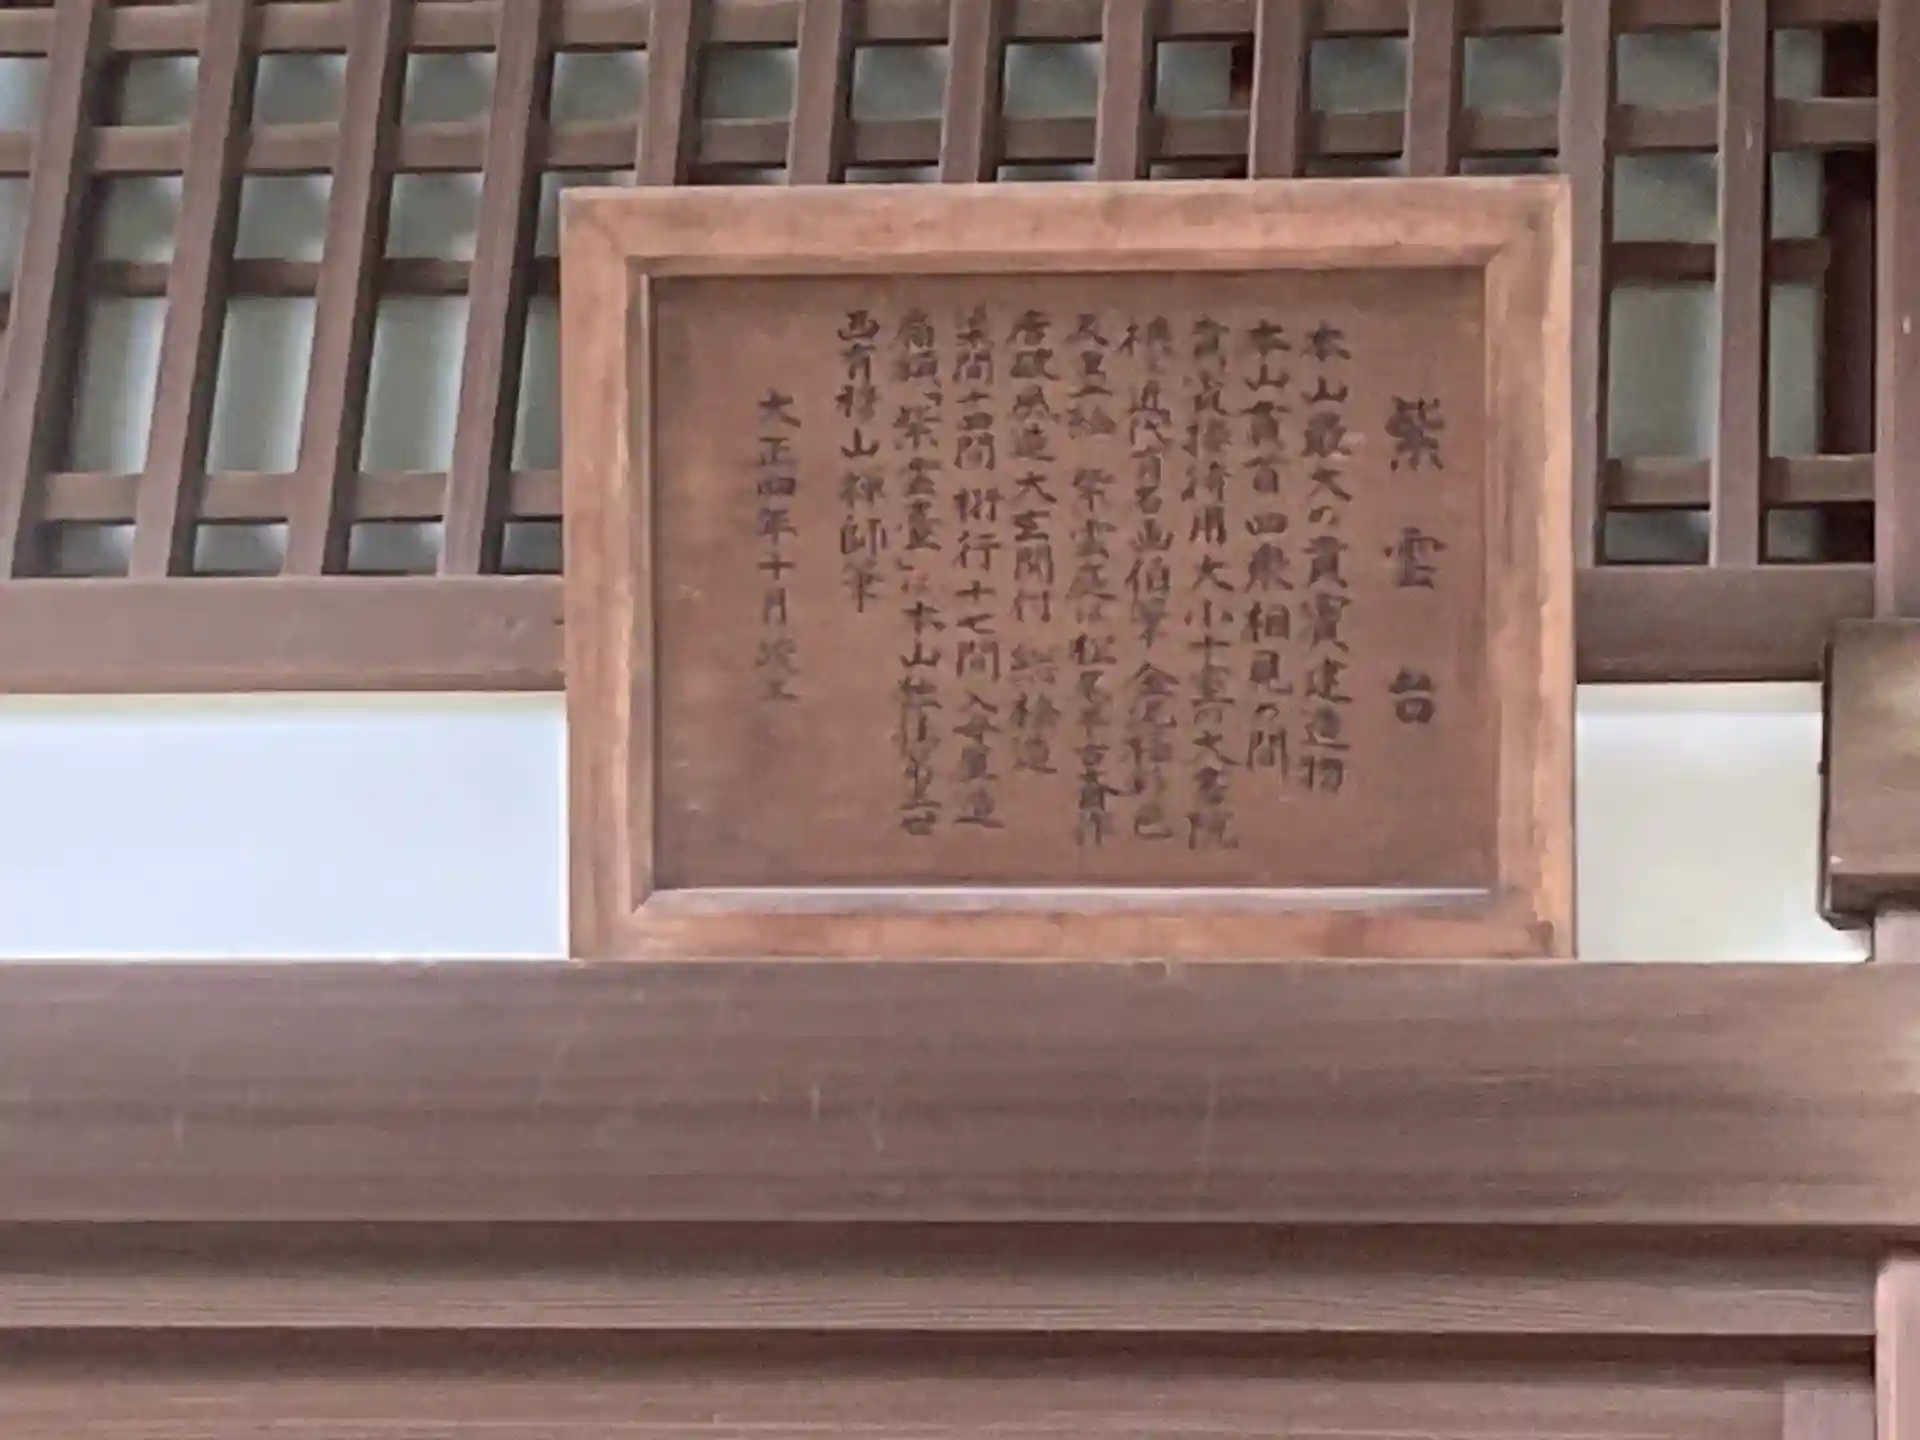 紫雲台
本山最大の貴賓建造物
本山貫首四衆相見の間
貴賓接待用大小十室の大書院
襖は近代有名画伯筆 金泥極彩色
唐破風造大玄関付 総檜造
梁間十四間 桁行十七間 入母屋造
扁額「紫雲臺」は本山独住第三世
西有穆山禅師筆
大正四年十月竣工